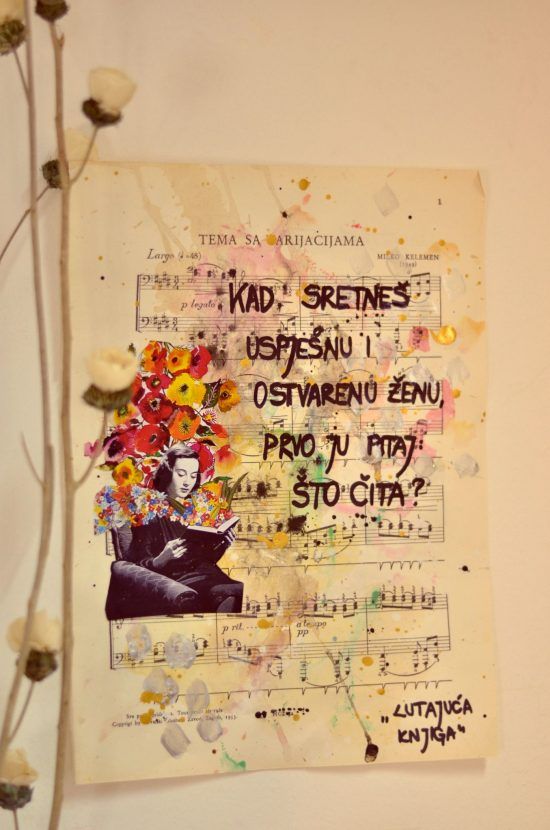 1
TEMA SA VARIJACIJAMA
Largo
MILKO KELEMEN
(1949)
p legato
KAD SRETNEŠ
USPJEŠNU I
OSTVARENU ŽENU,
PRVO JU PITAJ:
ŠTO ČITA?
p rit.
a tempo
pp
Zagreb, 1953.
„LUTAJUĆA
KNJIGA“